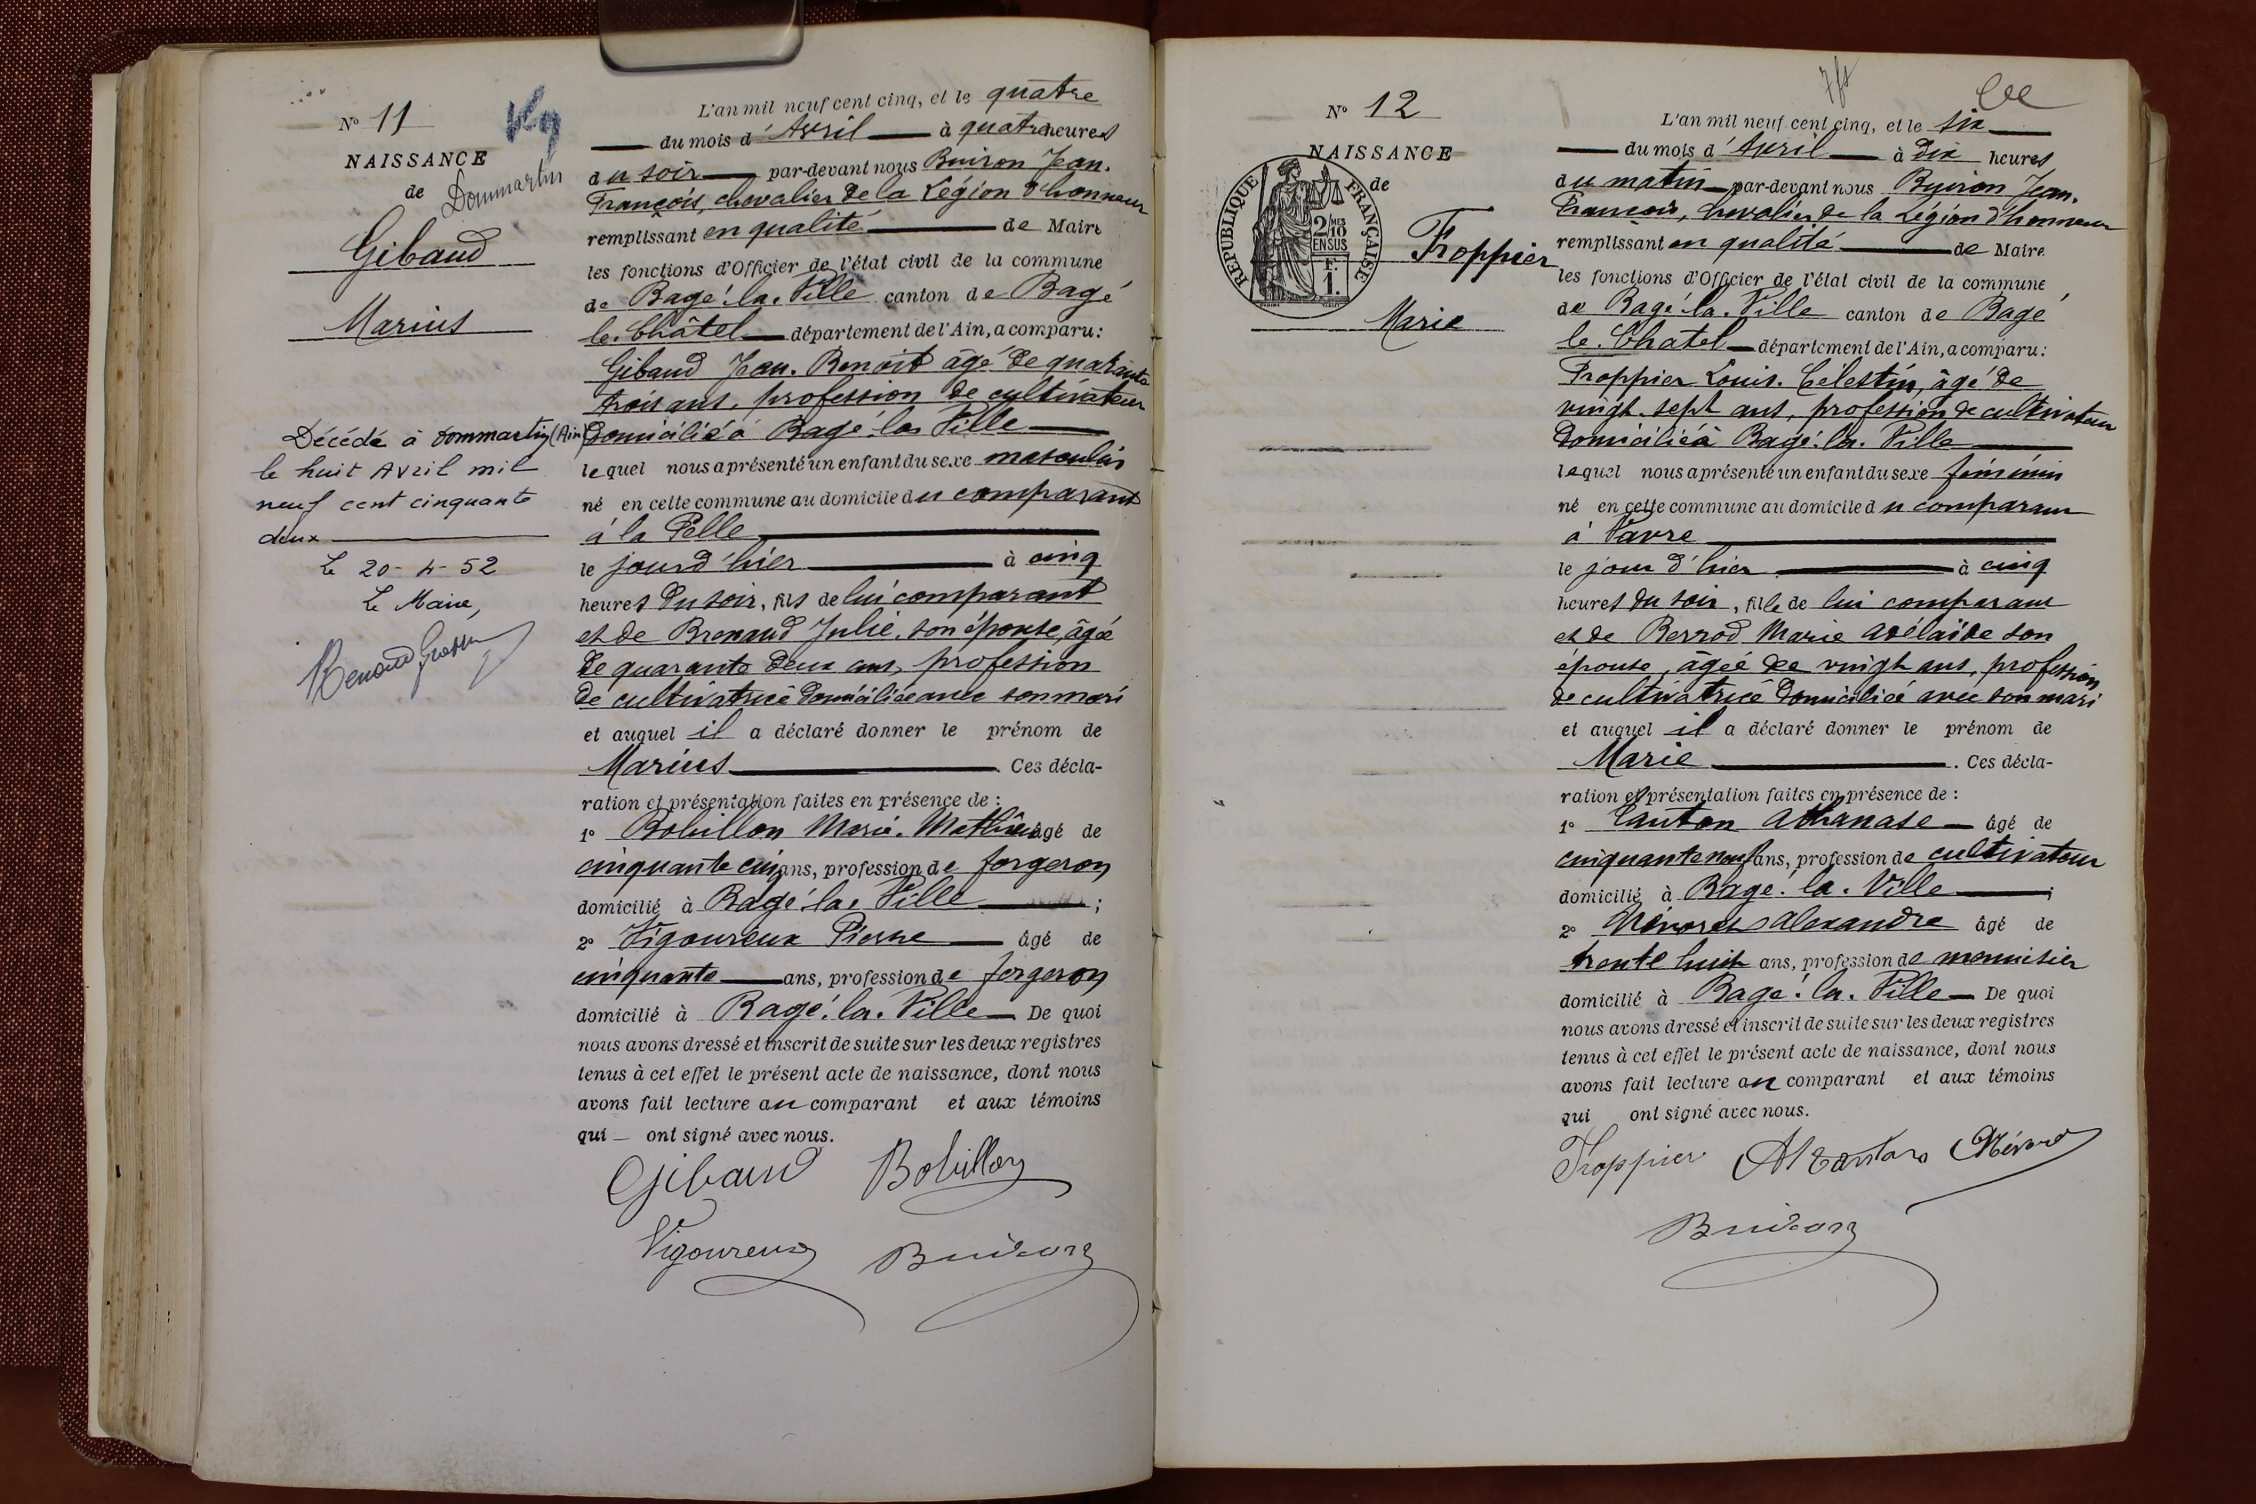 N° 11
NAISSANCE
de Dommartin
Gibaud
Marius
Décédé à Dommartin (Ain)
le huit Avril mil
neuf cent cinquante
deux
Le 20-4-52
Le Maire,
L'an mil neuf cent cinq, et le quatre
du mois d'Avril à quatre heures
du soir par-devant nous Buiron Jean.
François, chevalier de la Légion d'honneur
remplissant en qualité de Maire
les fonctions d'Officier de l'état civil de la commune
de Bagé.la.Ville canton de Bagé
le.Châtel département de l'Ain, a comparu:
Gibaud Jean.Benoit âgé de quarante
trois ans, profession de cultivateur
domicilié à Bagé.la.Ville
lequel nous a présenté un enfant du sexe masculin
né en cette commune au domicile du comparant
à la Pelle
le jour d'hier à cinq
heures du soir, fils de lui comparant
et de Brenaud Julie, son épouse, âgée
de quarante deux ans, profession
de cultivatrice domiciliée avec son mari
et auquel il a déclaré donner le prénom de
Marius. Ces décla-
ration et présentation faites en présence de :
1° Bobillon Marie.Mathieu âgé de
cinquante cinq ans, profession de forgeron
domicilié à Bagé.la.Ville ;
2° Vigoureux Pierre âgé de
cinquante ans, profession de forgeron
domicilié à Bagé.la.Ville De quoi
nous avons dressé et inscrit de suite sur les deux registres
tenus à cet effet le présent acte de naissance, dont nous
avons fait lecture au comparant et aux témoins
qui — ont signé avec nous.
Gibaud Bobillon
Vigoureux Buiron
N° 12
NAISSANCE
de
REPUBLIQUE FRANÇAISE
2/10 MES
EN SUS
F.
1.
Froppier
Marie
L'an mil neuf cent cinq, et le six
du mois d'Avril à dix heures
du matin par-devant nous Buiron Jean.
François, chevalier de la Légion d'honneur
remplissant en qualité de Maire
les fonctions d'Officier de l'état civil de la commune
de Bagé.la.Ville canton de Bagé
le.Chatel département de l'Ain, a comparu:
Froppier Louis.Célestin, âgé de
vingt.sept ans, profession de cultivateur
domicilié à Bagé.la.Ville
lequel nous a présenté un enfant du sexe féminin
né en cette commune au domicile du comparant
à Vavre
le jour d'hier à cinq
heures du soir, fille de lui comparant
et de Berrod Marie Adélaïde son
épouse, âgée de vingt ans, profession
de cultivatrice domiciliée avec son mari
et auquel il a déclaré donner le prénom de
Marie. Ces décla-
ration et présentation faites en présence de :
1° Tanton Athanase âgé de
cinquante neuf ans, profession de cultivateur
domicilié à Bagé.la.Ville ;
2° Alexandre âgé de
trente huit ans, profession de menuisier
domicilié à Bagé.la.Ville De quoi
nous avons dressé et inscrit de suite sur les deux registres
tenus à cet effet le présent acte de naissance, dont nous
avons fait lecture au comparant et aux témoins
qui ont signé avec nous.
Froppier
Buiron